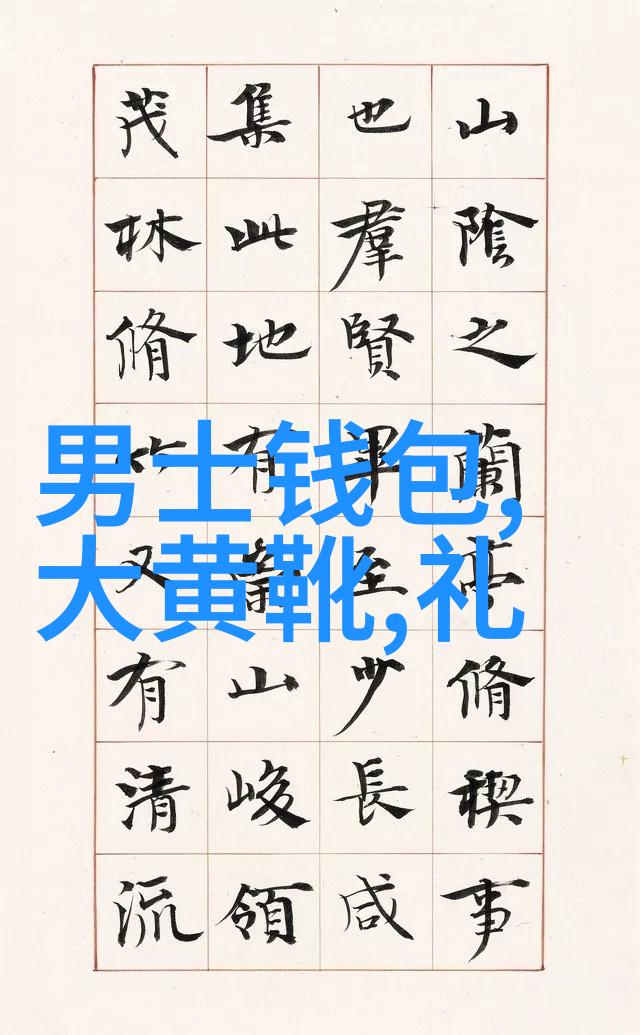 山陰之蘭亭脩稧事
也羣賢畢至少長咸
集此地有崇山峻領
茂林脩竹又有清流
男士钱包,
大黄靴,礼